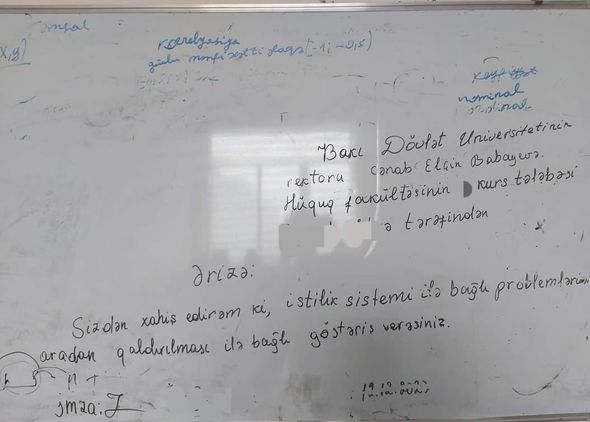 əmsal
x,y)
Korelyasiya
güclü mənfi xətti əlaqə [-1; -0,5)
nominal
Bakı Dövlət Universitetinin
rektoru cənab Elçin Babayevə.
Hüquq fakültəsinin kurs tələbəsi
ə tərəfindən
Ərizə:
Sizdən xahiş edirəm ki, istilik sistemi ilə bağlı problemlərin
aradan qaldırılması ilə bağlı göstəriş verəsiniz.
imza: